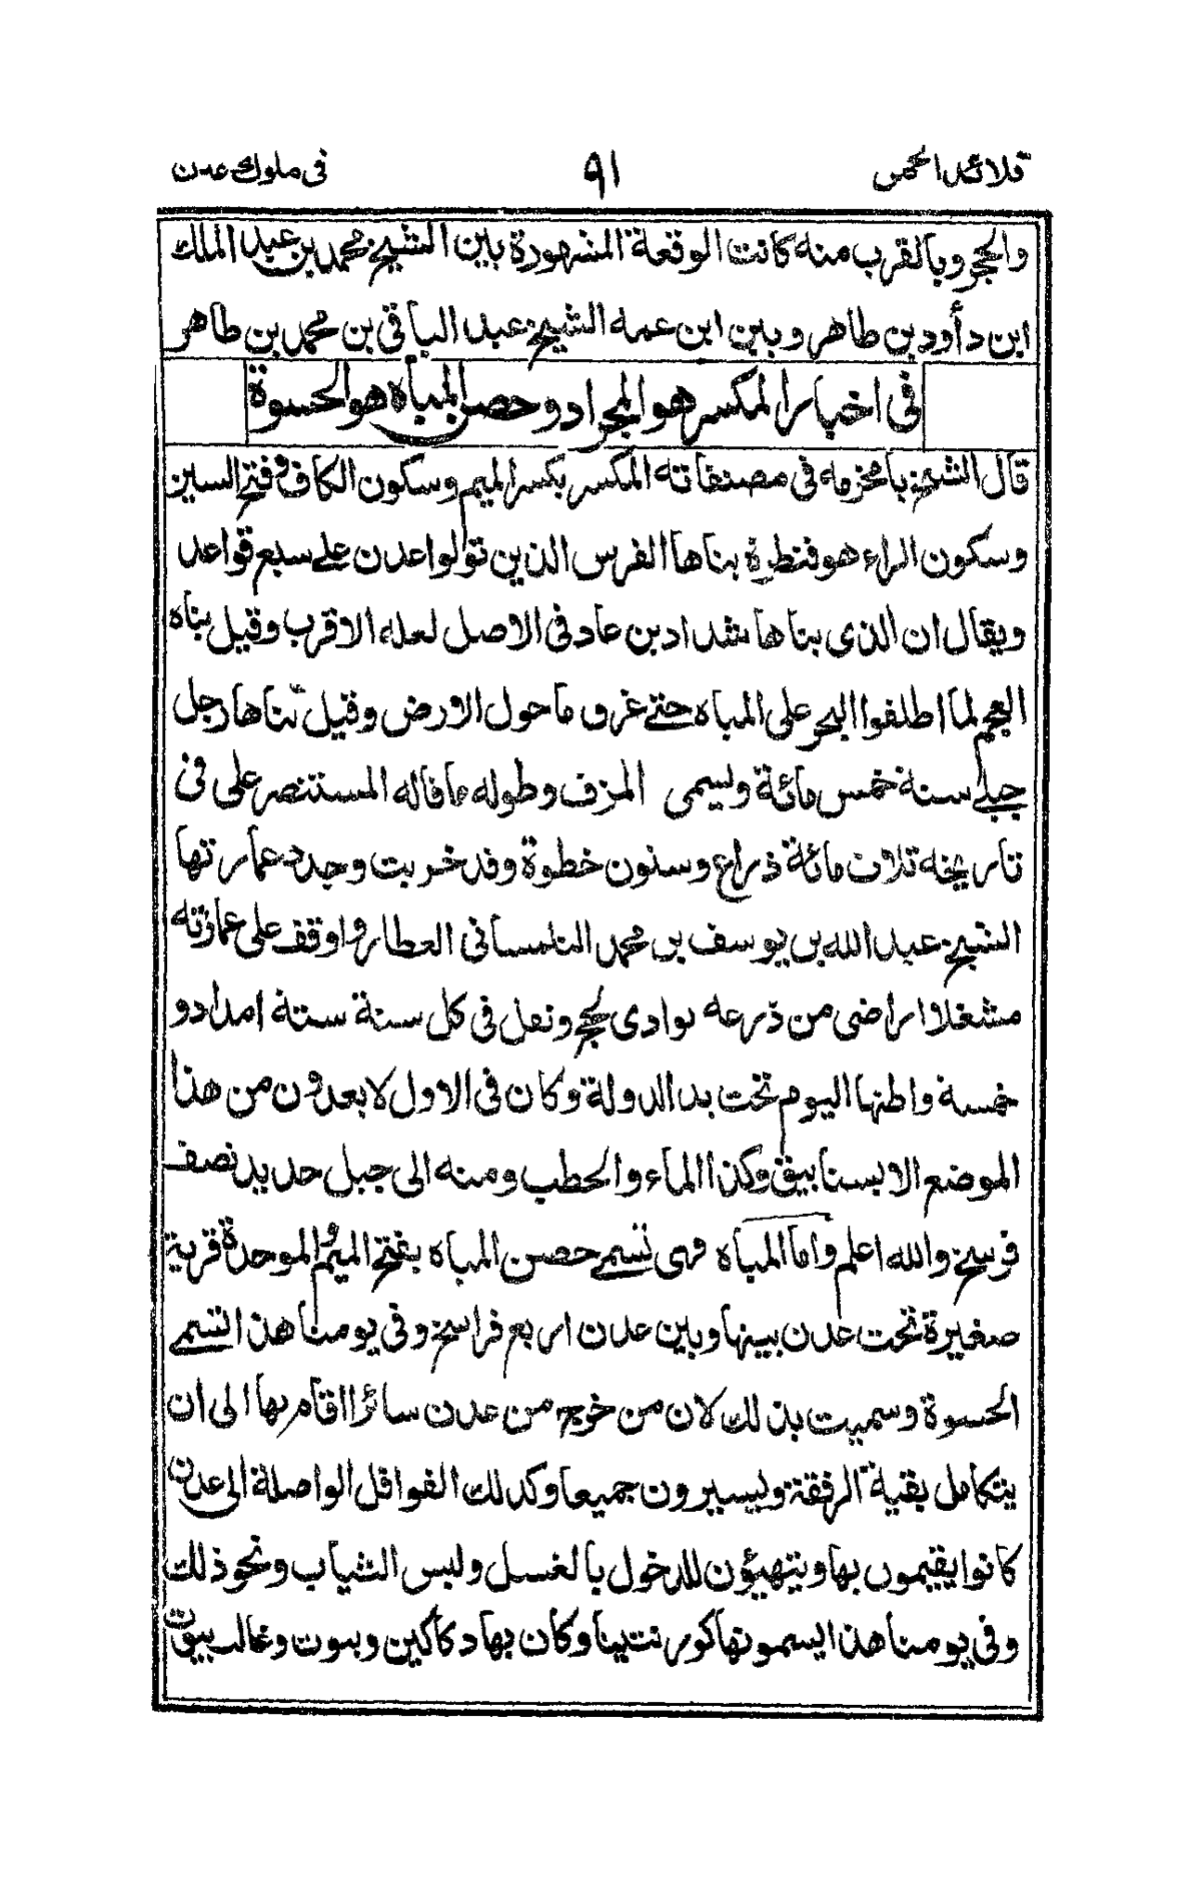 قلائد الخمس
٩١
في ملوك عدن
والحجر وبالقرب منه كانت الوقعة المشهورة بين الشيخ محمد بن عبد الملك
ابن دأود بن طاهر وبين ابن عمه الشيخ عبد الباقي بن محمد بن طاهر
في اخبار المكسر هو المجراد وحصن المباه هو الحسوة
قال الشيخ بامخرمه في مصنفاته المكسر بكسر الميم وسكون الكاف وفتح السين
وسكون الراء هو قنطرة بناها الفرس الذين تولوا عدن على سبع قواعد
ويقال ان الذي بناها شداد بن عاد في الاصل لعله الاقرب وقيل بناه
العجم لما اطلقوا البحر على المباه حتى غرق ما حول الارض وقيل بناها رجل
جبلي سنة خمس مائة ويسمى المزف وطوله ما قاله المستنصر على في
تاريخه ثلاث مائة ذراع وستون خطوة وقد خربت وجدد عمارتها
الشيخ عبد الله بن يوسف بن محمد التلمساني العطار واوقف على عمارته
مشغلا اراضي من ذرعه بوادي لحج ونقل في كل سنة ستة امداد و
خمسة واظنها اليوم تحت يد الدولة وكان في الاول لا يعدون من هذا
الموضع الا بسنابيق وكذا الماء والحطب ومنه الى جبل حديد نصف
فرسخ والله اعلم واما المباه فهي تسمى حصن المباه بفتح الميم والموحدة قرية
صغيرة تحت عدن بينها وبين عدن اربع فراسخ وفي يومنا هذا تسمى
الحسوة وسميت بذلك لان من خرج من عدن سائرا اقام بها الى ان
يتكامل بقية الرفقة ويسيرون جميعا وكذلك القوافل الواصلة الى عدن
كانوا يقيمون بها ويتهيؤن للدخول بالغسل ولبس الثياب ونحو ذلك
وفي يومنا هذا يسمونها كورنتينا وكان بها دكاكين وبيوت وغالب بيوت